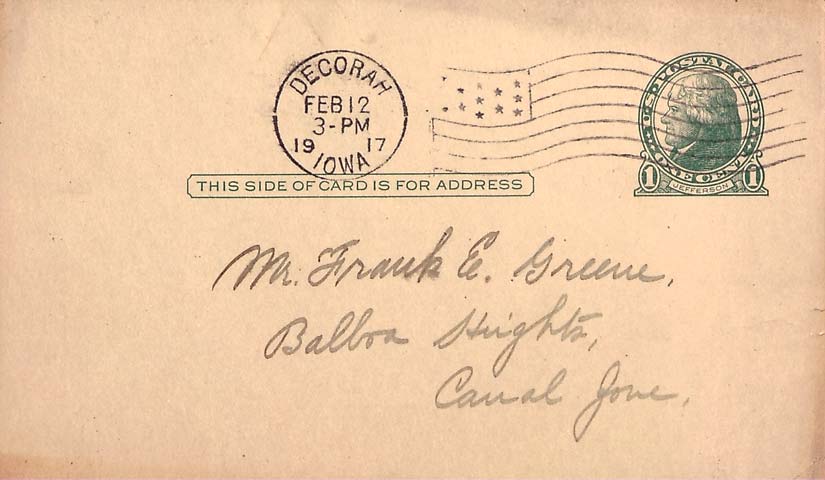 DECORAH
FEB 12
3-PM
19 17
IOWA
U.S. POSTAL CARD
ONE CENT
1 JEFFERSON 1
THIS SIDE OF CARD IS FOR ADDRESS
Mr. Frank E. Greene,
Balboa Heights,
Canal Zone.